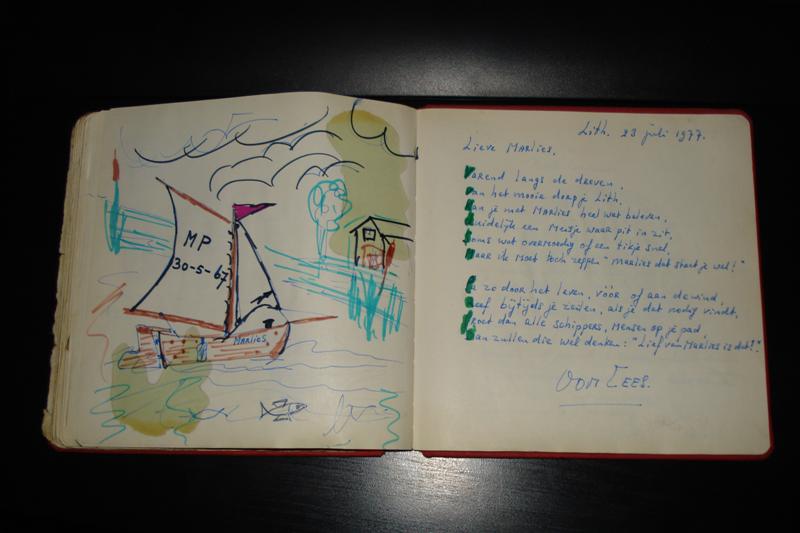 MP
30-5-67
MARLIES
Lith. 23 juli 1977.
Lieve Marlies.
Varend langs de dreven,
van het mooie dorpje Lith.
kan je met Marlies heel wat beleven,
duidelijk een Meisje waar pit in zit,
soms wat overmoedig of een tikje snel,
maar ik moet toch zeggen "Marlies dat staat je wel!"
Ga zo door het leven, vóór of aan de wind,
reef bijtijds je zeilen, als je dat nodig vindt,
groet dan alle schippers, mensen op je pad,
dan zullen die wel denken: "Lief van Marlies is dat!".
Oom Cees.